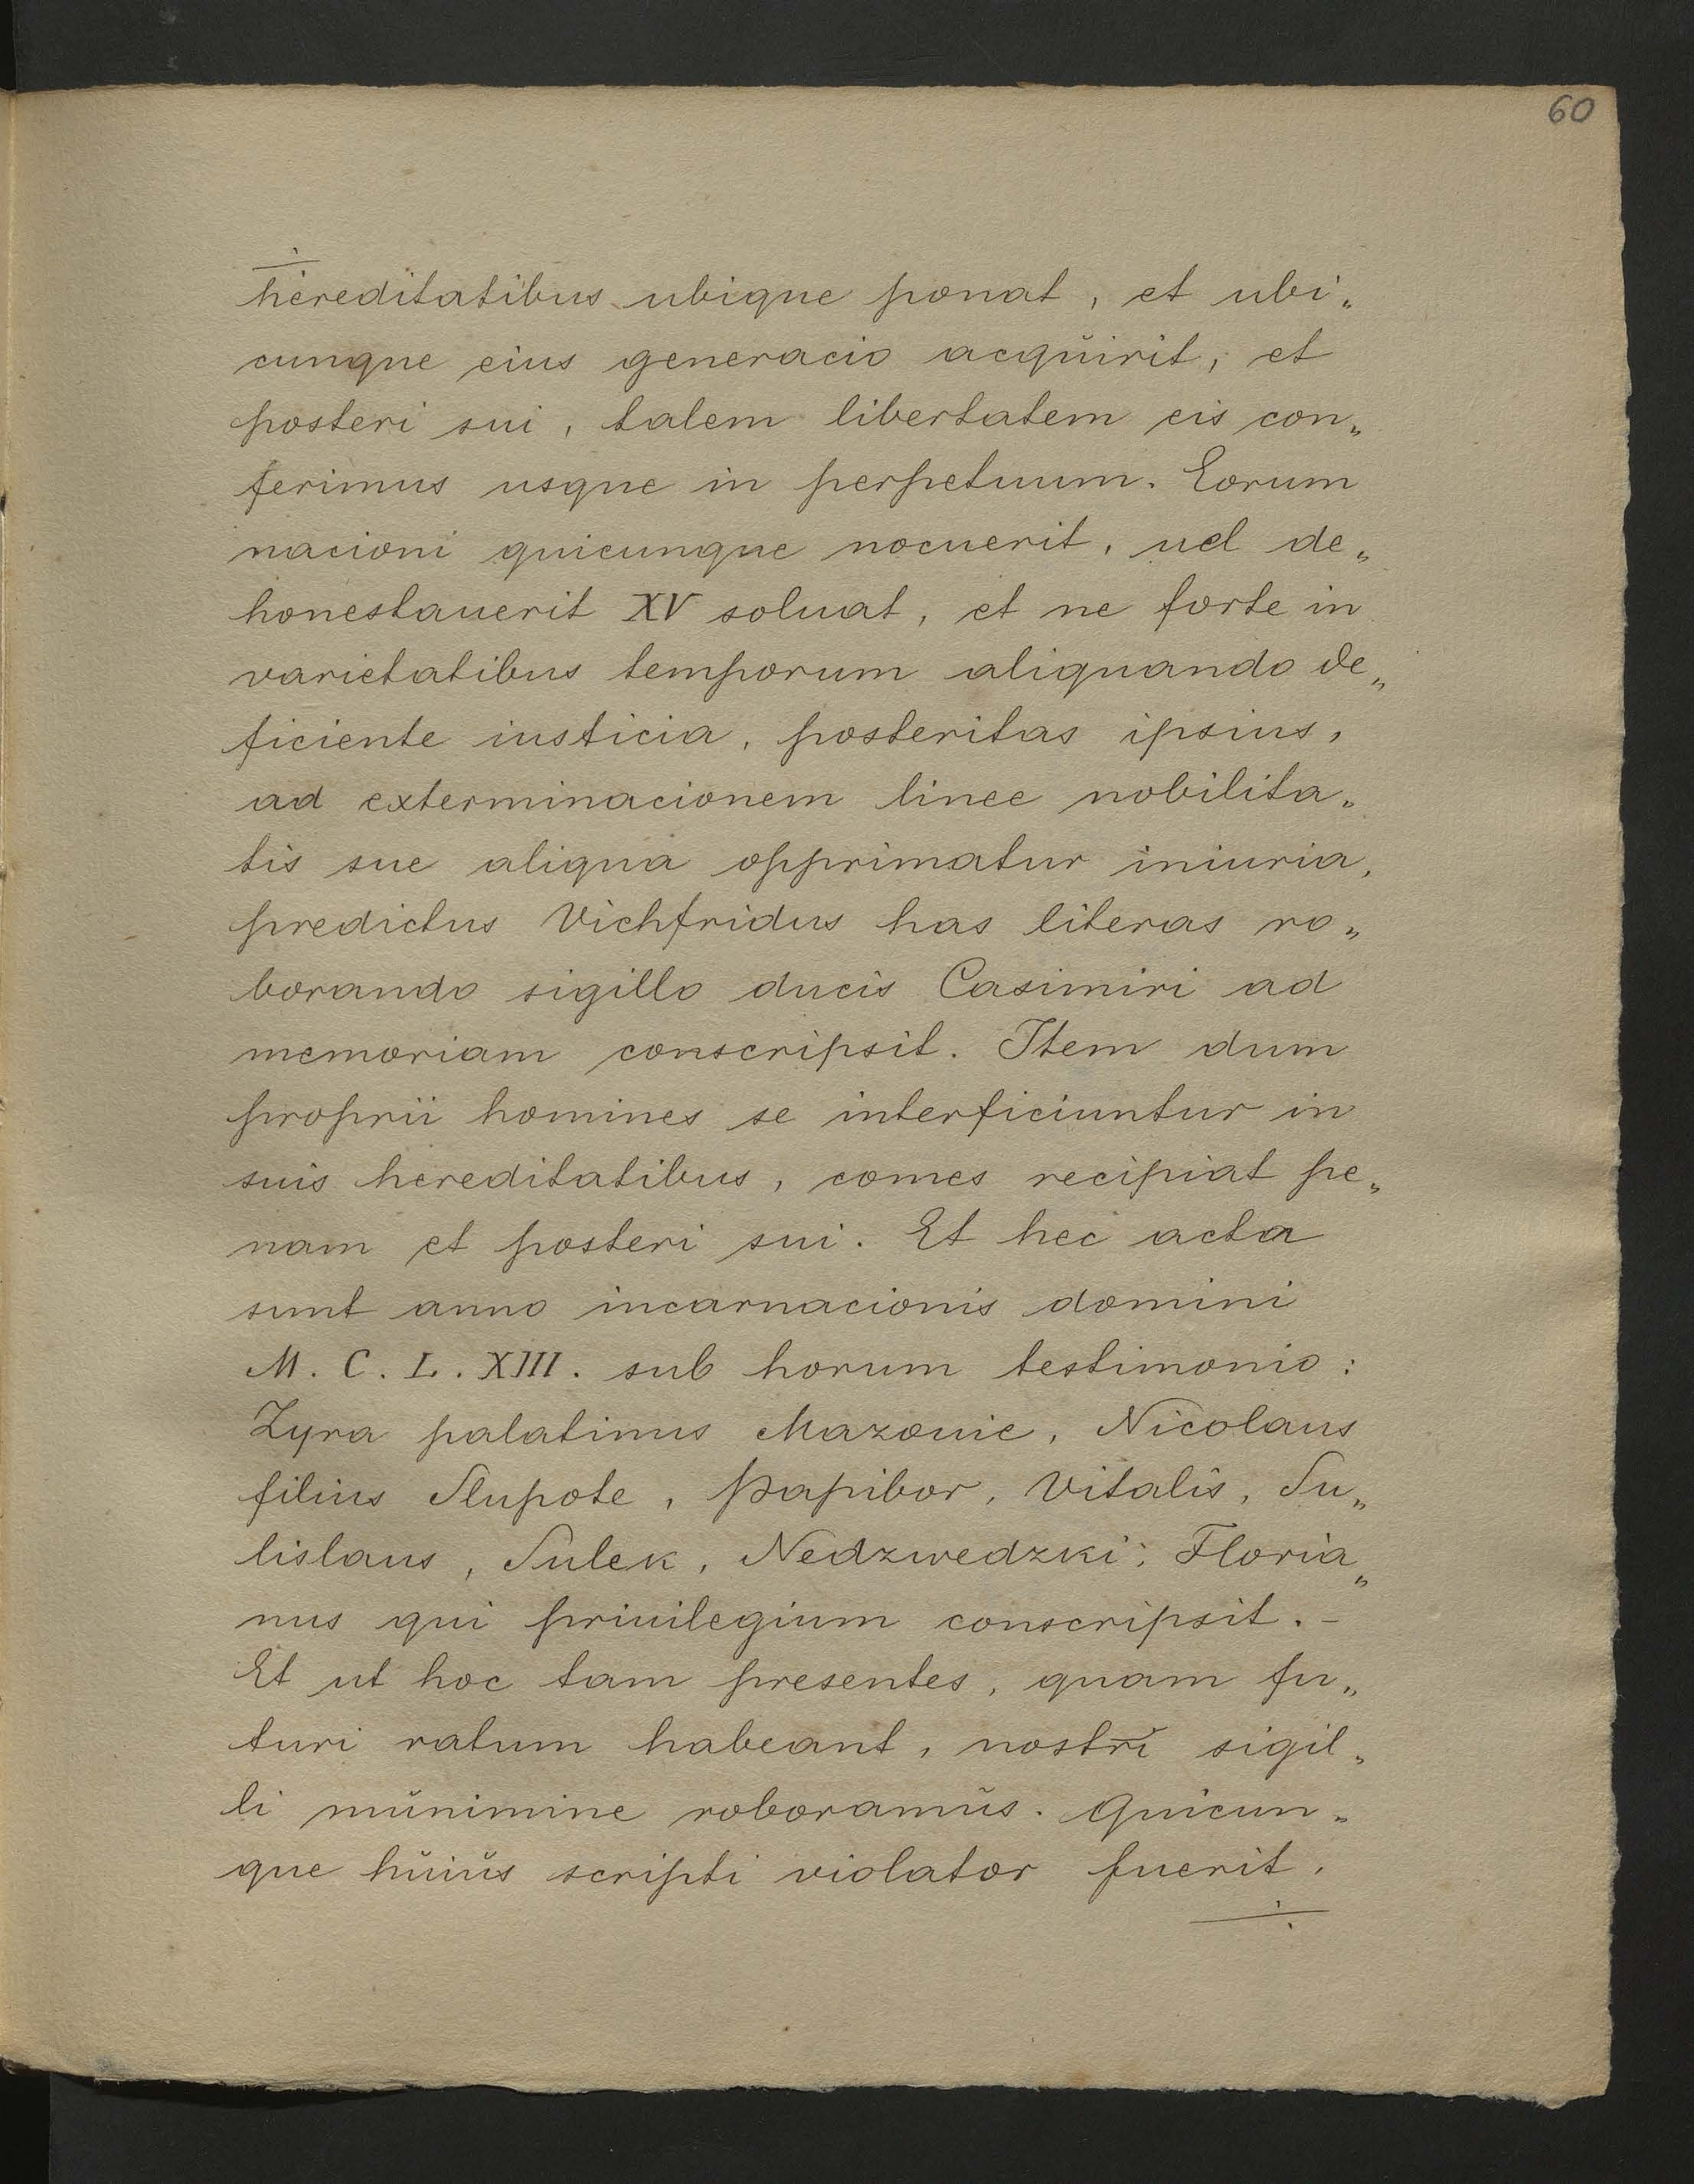 60
hereditatibus ubique ponat, et ubi„
cunque eius generacio acqŭirit, et
posteri sui, talem libertatem eis con„
ferimus usque in perpetuum. Eorum
nacioni quicunque nocuerit, uel de„
honestauerit XV soluat, et ne forte in
varietatibus temporum aliquando de„
ficiente iusticia, posteritas ipsius,
ad exterminacionem linee nobilita„
tis sue aliqua opprimatur iniuria,
predictus Vichfridus has literas ro„
borando sigillo ducis Casimiri ad
memoriam conscripsit. Item dum
proprii homines se interficiuntur in
suis hereditatibus, comes recipiat pe„
nam et posteri sui. Et hec acta
sunt anno incarnacionis domini
M. C. L. XIII. sub horum testimonio:
Zyra palatinus Mazouie, Nicolaus
filius Slupote, Papibor, Vitalis, Su„
lislaus, Sulek, Nedzwedzki; Floria„
nus qui priuilegium conscripsit. –
Et ut hoc tam presentes, quam fu„
turi ratum habeant, nostri sigil„
li mŭnimine roboramŭs. Quicun„
que hŭiŭs scripti violator fuerit,